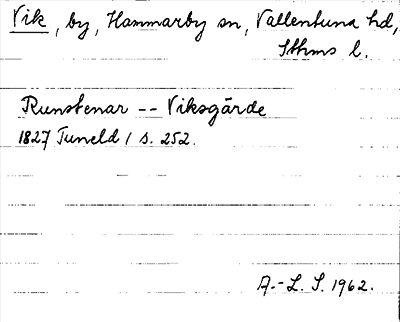 Vik, by, Hammarby sn, Vallentuna hd,
Sthms l.
Runstenar -- Viksgärde
1827 Tuneld 1 s. 252.
A.-L. S. 1962.